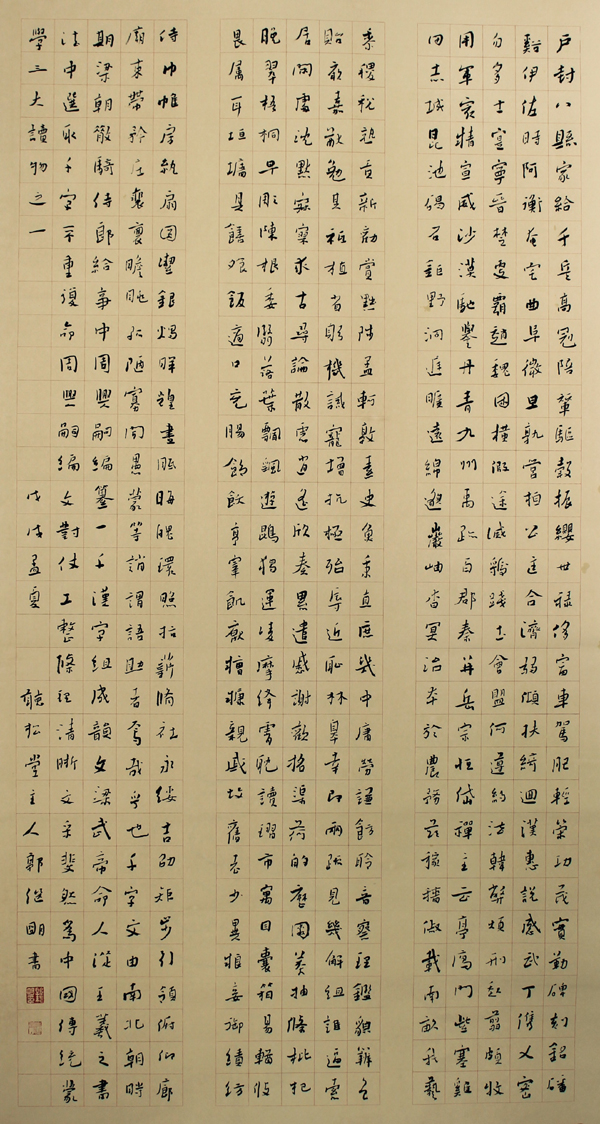 戶封八縣家給千兵高冠陪輦驅轂振纓世祿侈富車駕肥輕策功茂實勒碑刻銘磻
谿伊佐時阿衡奄宅曲阜微旦孰營桓公匡合濟弱傾扶綺迴漢惠說感武丁俊乂密
勿多士寔寧晉楚更霸趙魏困橫假途滅虢踐土會盟何遵約法韓弊煩刑起翦頗牧
用軍最精宣威沙漠馳譽丹青九州禹跡百郡秦并岳宗恒岱禪主云亭雁門紫塞雞
田赤城昆池碣石鉅野洞庭曠遠綿邈巖岫杳冥治本於農務茲稼穡俶載南畝我藝
黍稷稅熟貢新勸賞黜陟孟軻敦素史魚秉直庶幾中庸勞謙飭聆音察理鑑貌辨色
貽厥嘉猷勉其祗植省躬譏誡寵增抗極殆辱近恥林皋幸即兩疏見幾解組誰逼索
居閒處沈默寂寥求古尋論散慮逍遙欣奏累遣慼謝歡招渠荷的歷園莽抽條枇杷
晚翠梧桐早凋陳根委翳落葉飄颻遊鵾獨運凌摩絳霄耽讀翫市寓目囊箱易輶攸
畏屬耳垣牆具膳餐飯適口充腸飽飫烹宰飢厭糟糠親戚故舊老少異糧妾御績紡
侍巾帷房紈扇圓潔銀燭煒煌晝眠晦魄環照指薪脩祜永綏吉劭矩步引領俯仰廊
廟束帶矜莊裵褢瞻眺孤陋寡聞愚蒙等誚謂語助者焉哉乎也千字文由南北朝時
期梁朝散騎侍郎給事中周興嗣編纂一千漢字組成韻文梁武帝命人從王羲之書
法中選取千字不重複命周興嗣編文對仗工整條理清晰文采斐然為中國傳統蒙
學三大讀物之一 戊戌孟夏 聽松堂主人郭繼明書